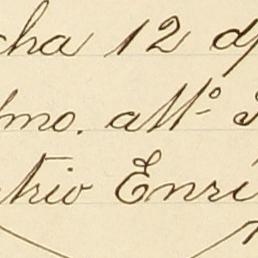 cha 12 d
lmo. att.º
trio Enri